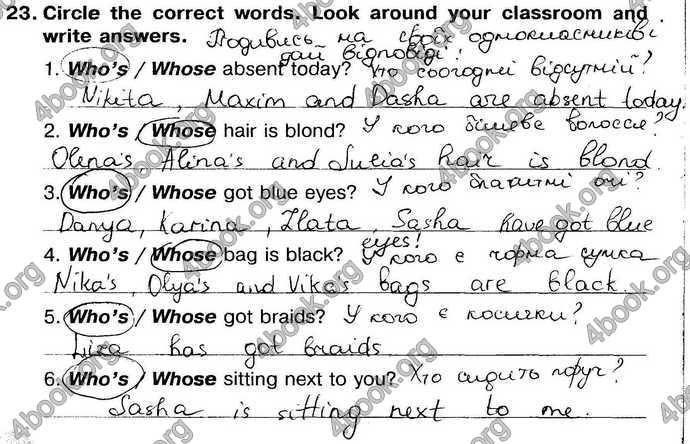 23. Circle the correct words. Look around your classroom and
write answers. Подивись на своїх однокласників і
дай відповіді!
1. Who's / Whose absent today? Хто сьогодні відсутній?
Nikita, Maxim and Dasha are absent today.
2. Who's / Whose hair is blond? У кого білеве волосся?
Olena's Alina's and Julia's hair is blond.
3. Who's / Whose got blue eyes? У кого блакитні очі?
Danya, Karina, Zlata, Sasha have got blue
eyes!
4. Who's / Whose bag is black? У кого є чорна сумка
Nika's, Olya's and Vika's bags are black.
5. Who's / Whose got braids? У кого є косички?
Liza has got braids
6. Who's / Whose sitting next to you? Хто сидить поруч?
Sasha is sitting next to me.
4book.org
4book.org
4book.org
4book.org
4book.org
4book.org
4book.org
4book.org
4book.org